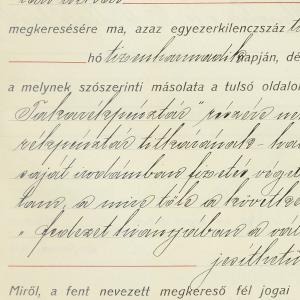 megkeresésére ma, azaz egyezerkilenczszáz
hó tizenharmadik napján, dé
a melynek szószerinti másolata a tulsó oldalo
Takarékpénztár" részére
rékpénztár titkárának
saját irodámban fizetés vége
tam, a mire tőle a követke
" fedezet hiányjában a
jesithető
Miről, a fent nevezett megkereső fél jogai